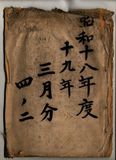 昭和十八年度
十九年
三月分
四ノ二